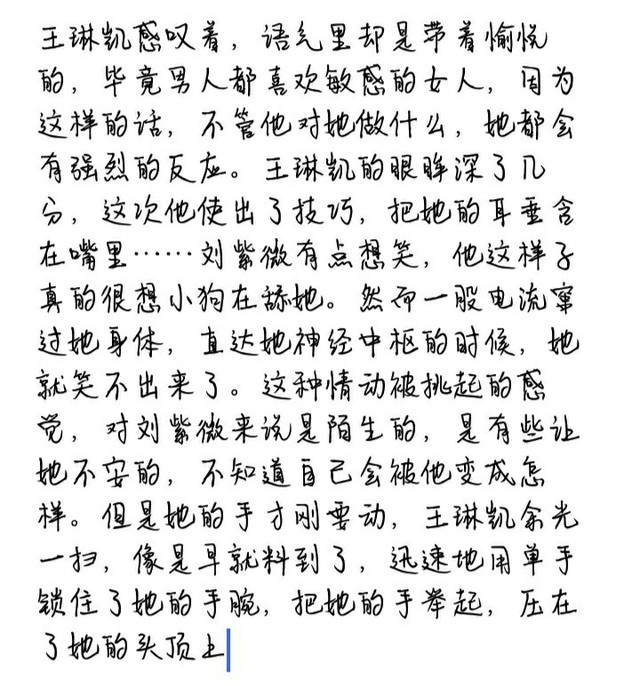 王琳凯感叹着，语气里却是带着愉悦
的，毕竟男人都喜欢敏感的女人，因为
这样的话，不管他对她做什么，她都会
有强烈的反应。王琳凯的眼眸深了几
分，这次他使出了技巧，把她的耳垂含
在嘴里……刘紫微有点想笑，他这样子
真的很想小狗在舔她。然而一股电流窜
过她身体，直达她神经中枢的时候，她
就笑不出来了。这种情动被挑起的感
觉，对刘紫微来说是陌生的，是有些让
她不安的，不知道自己会被他变成怎
样。但是她的手才刚要动，王琳凯余光
一扫，像是早就料到了，迅速地用单手
锁住了她的手腕，把她的手举起，压在
了她的头顶上